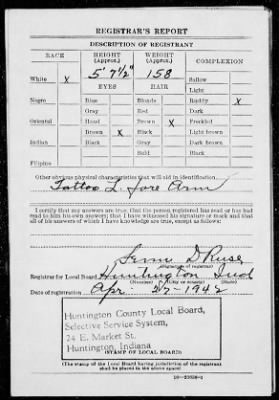 REGISTRAR'S REPORT
DESCRIPTION OF REGISTRANT
RACE HEIGHT (Approx.) WEIGHT (Approx.) COMPLEXION
White X 5' 7½" 158 Sallow
EYES HAIR Light
Negro Blue Blonde Ruddy X
Gray Red Dark
Oriental Hazel Brown X Freckled
Brown X Black Light brown
Indian Black Gray Dark brown
Bald Black
Filipino
Other obvious physical characteristics that will aid in identification
Tattoo L. fore Arm
I certify that my answers are true; that the person registered has read or has had
read to him his own answers; that I have witnessed his signature or mark and that
all of his answers of which I have knowledge are true, except as follows:
D Ruse
(Signature of registrar)
Registrar for Local Board Huntington Ind
(Number) (City or county) (State)
Date of registration Apr. 27-1942
Huntington County Local Board,
Selective Service System,
24 E. Market St.
Huntington, Indiana
(STAMP OF LOCAL BOARD)
(The stamp of the Local Board having jurisdiction of the registrant
shall be placed in the above space)